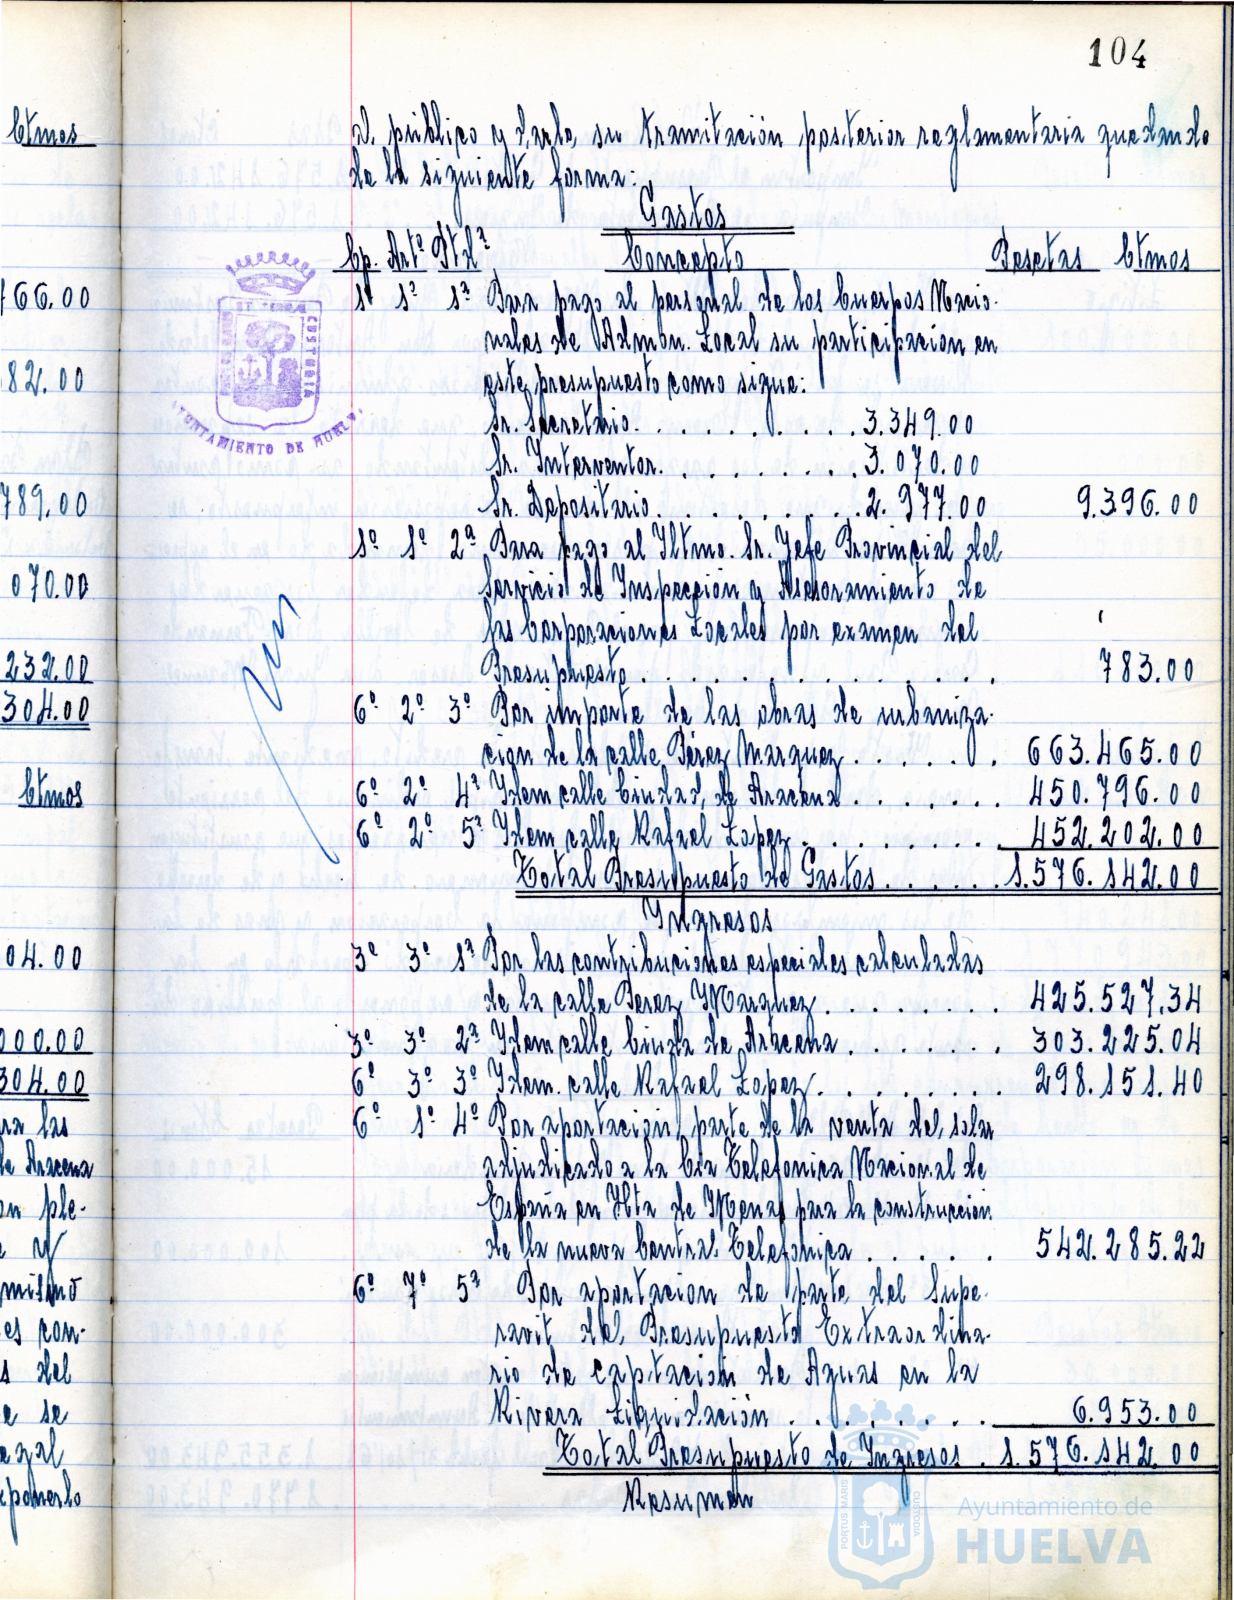 104
Ctmos
166.00
82.00
789,00
070.00
232.00
304.00
Ctmos
04.00
000.00
304.00
ra las
de Aracena
on ple-
e y
mismo
es con-
s del
e se
egal
exponerlo
al público y darle su tramitación posterior reglamentaria quedando
de la siguiente forma:
Gastos
Cp. Artº Ptdª Concepto Pesetas Ctmos
1º 1º 1ª Para pago al personal de los Cuerpos Nacio-
nales de Admón. Local su participación en
este presupuesto como sigue:
Sr. Secretario. . . . . . . . . 3.349.00
Sr. Interventor. . . . . . . . 3.070.00
Sr. Depositario. . . . . . . . 2.977.00 9.396.00
1º 1º 2ª Para pago al Iltmo. Sr. Jefe Provincial del
Servicio de Inspección y Asesoramiento de
las Corporaciones Locales por examen del
Presupuesto. . . . . . . . . . . . . 783.00
6º 2º 3º Por importe de las obras de urbaniza-
ción de la calle Pérez Marquez . . . . . . 663.465.00
6º 2º 4ª Idem calle Ciudad de Aracena . . . . . . 450.796.00
6º 2º 5ª Idem calle Rafael Lopez . . . . . . . . . 452.202.00
Total Presupuesto de Gastos . . . . . . 1.576.142.00
Ingresos
3º 3º 1ª Por las contribuciones especiales calculadas
de la calle Perez Marquez . . . . . . . . 425.527,34
3º 3º 2ª Idem calle Ciuda de Aracena . . . . . . . 303.225.04
6º 3º 3º Idem. calle Rafael Lopez . . . . . . . . 298.151.40
6º 1º 4º Por aportación parte de la venta del solar
adjudicado a la Cia Telefonica Nacional de
España en Hta de Mena para la construcción
de la nueva Central Telefonica . . . . . 542.285.22
6º 7º 5ª Por aportacion de parte del Supe-
ravit del Presupuesto Extraordina-
rio de captación de Aguas en la
Rivera Liquidación . . . . . . . . 6.953.00
Total Presupuesto de Ingresos . 1.576.142.00
Resumen
AYUNTAMIENTO DE HUELVA
PORTUS MARIS
CUSTODIA
Ayuntamiento de
HUELVA